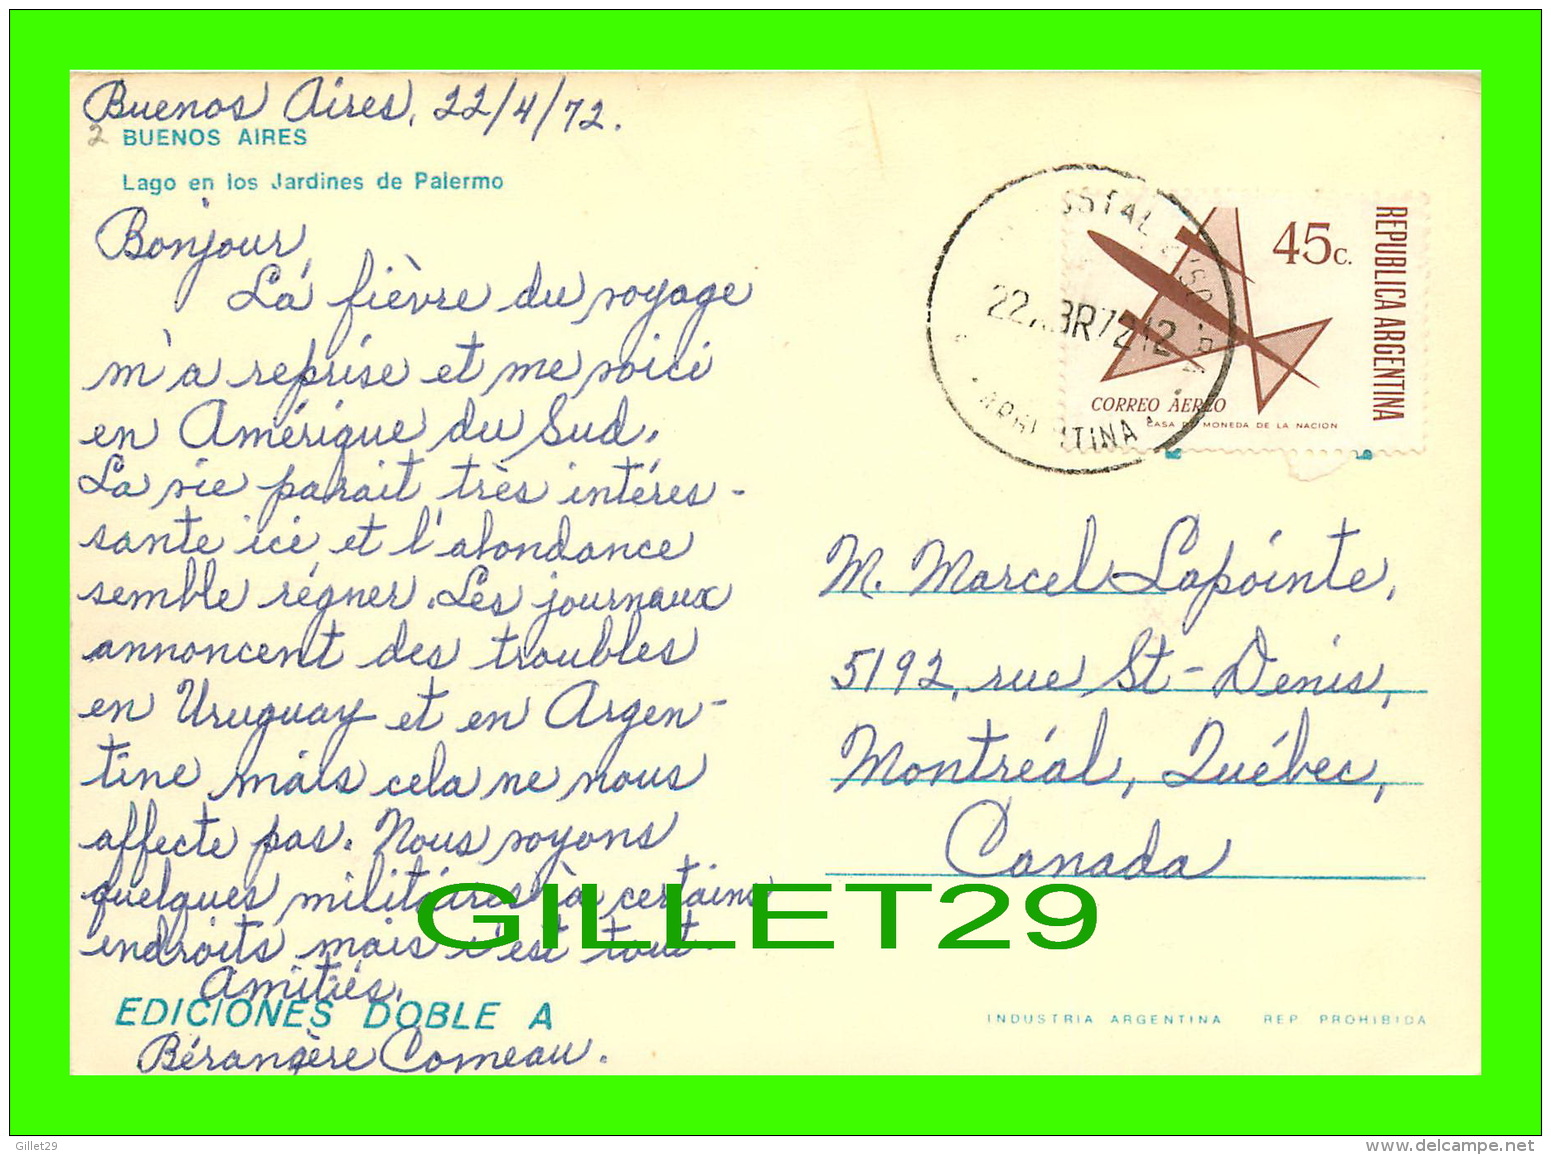 Buenos Aires, 22/4/72.
2 BUENOS AIRES
Lago en los Jardines de Palermo
Bonjour,
La fièvre du voyage
m'a reprise et me voici
en Amérique du Sud.
La vie paraît très intéres-
sante ici et l'abondance
semble régner. Les journaux
annoncent des troubles
en Uruguay et en Argen-
tine mais cela ne nous
affecte pas. Nous voyons
quelques militaires à certains
endroits mais c'est tout.
Amitiés,
EDICIONES DOBLE A
Bérangère Comeau.
22 ABR 72 12
ARGENTINA
45c.
REPUBLICA ARGENTINA
CORREO AEREO
CASA DE MONEDA DE LA NACION
M. Marcel Lapointe,
5192, rue St-Denis,
Montréal, Québec,
Canada
GILLET29
INDUSTRIA ARGENTINA REP PROHIBIDA
Gillet29
www.delcampe.net